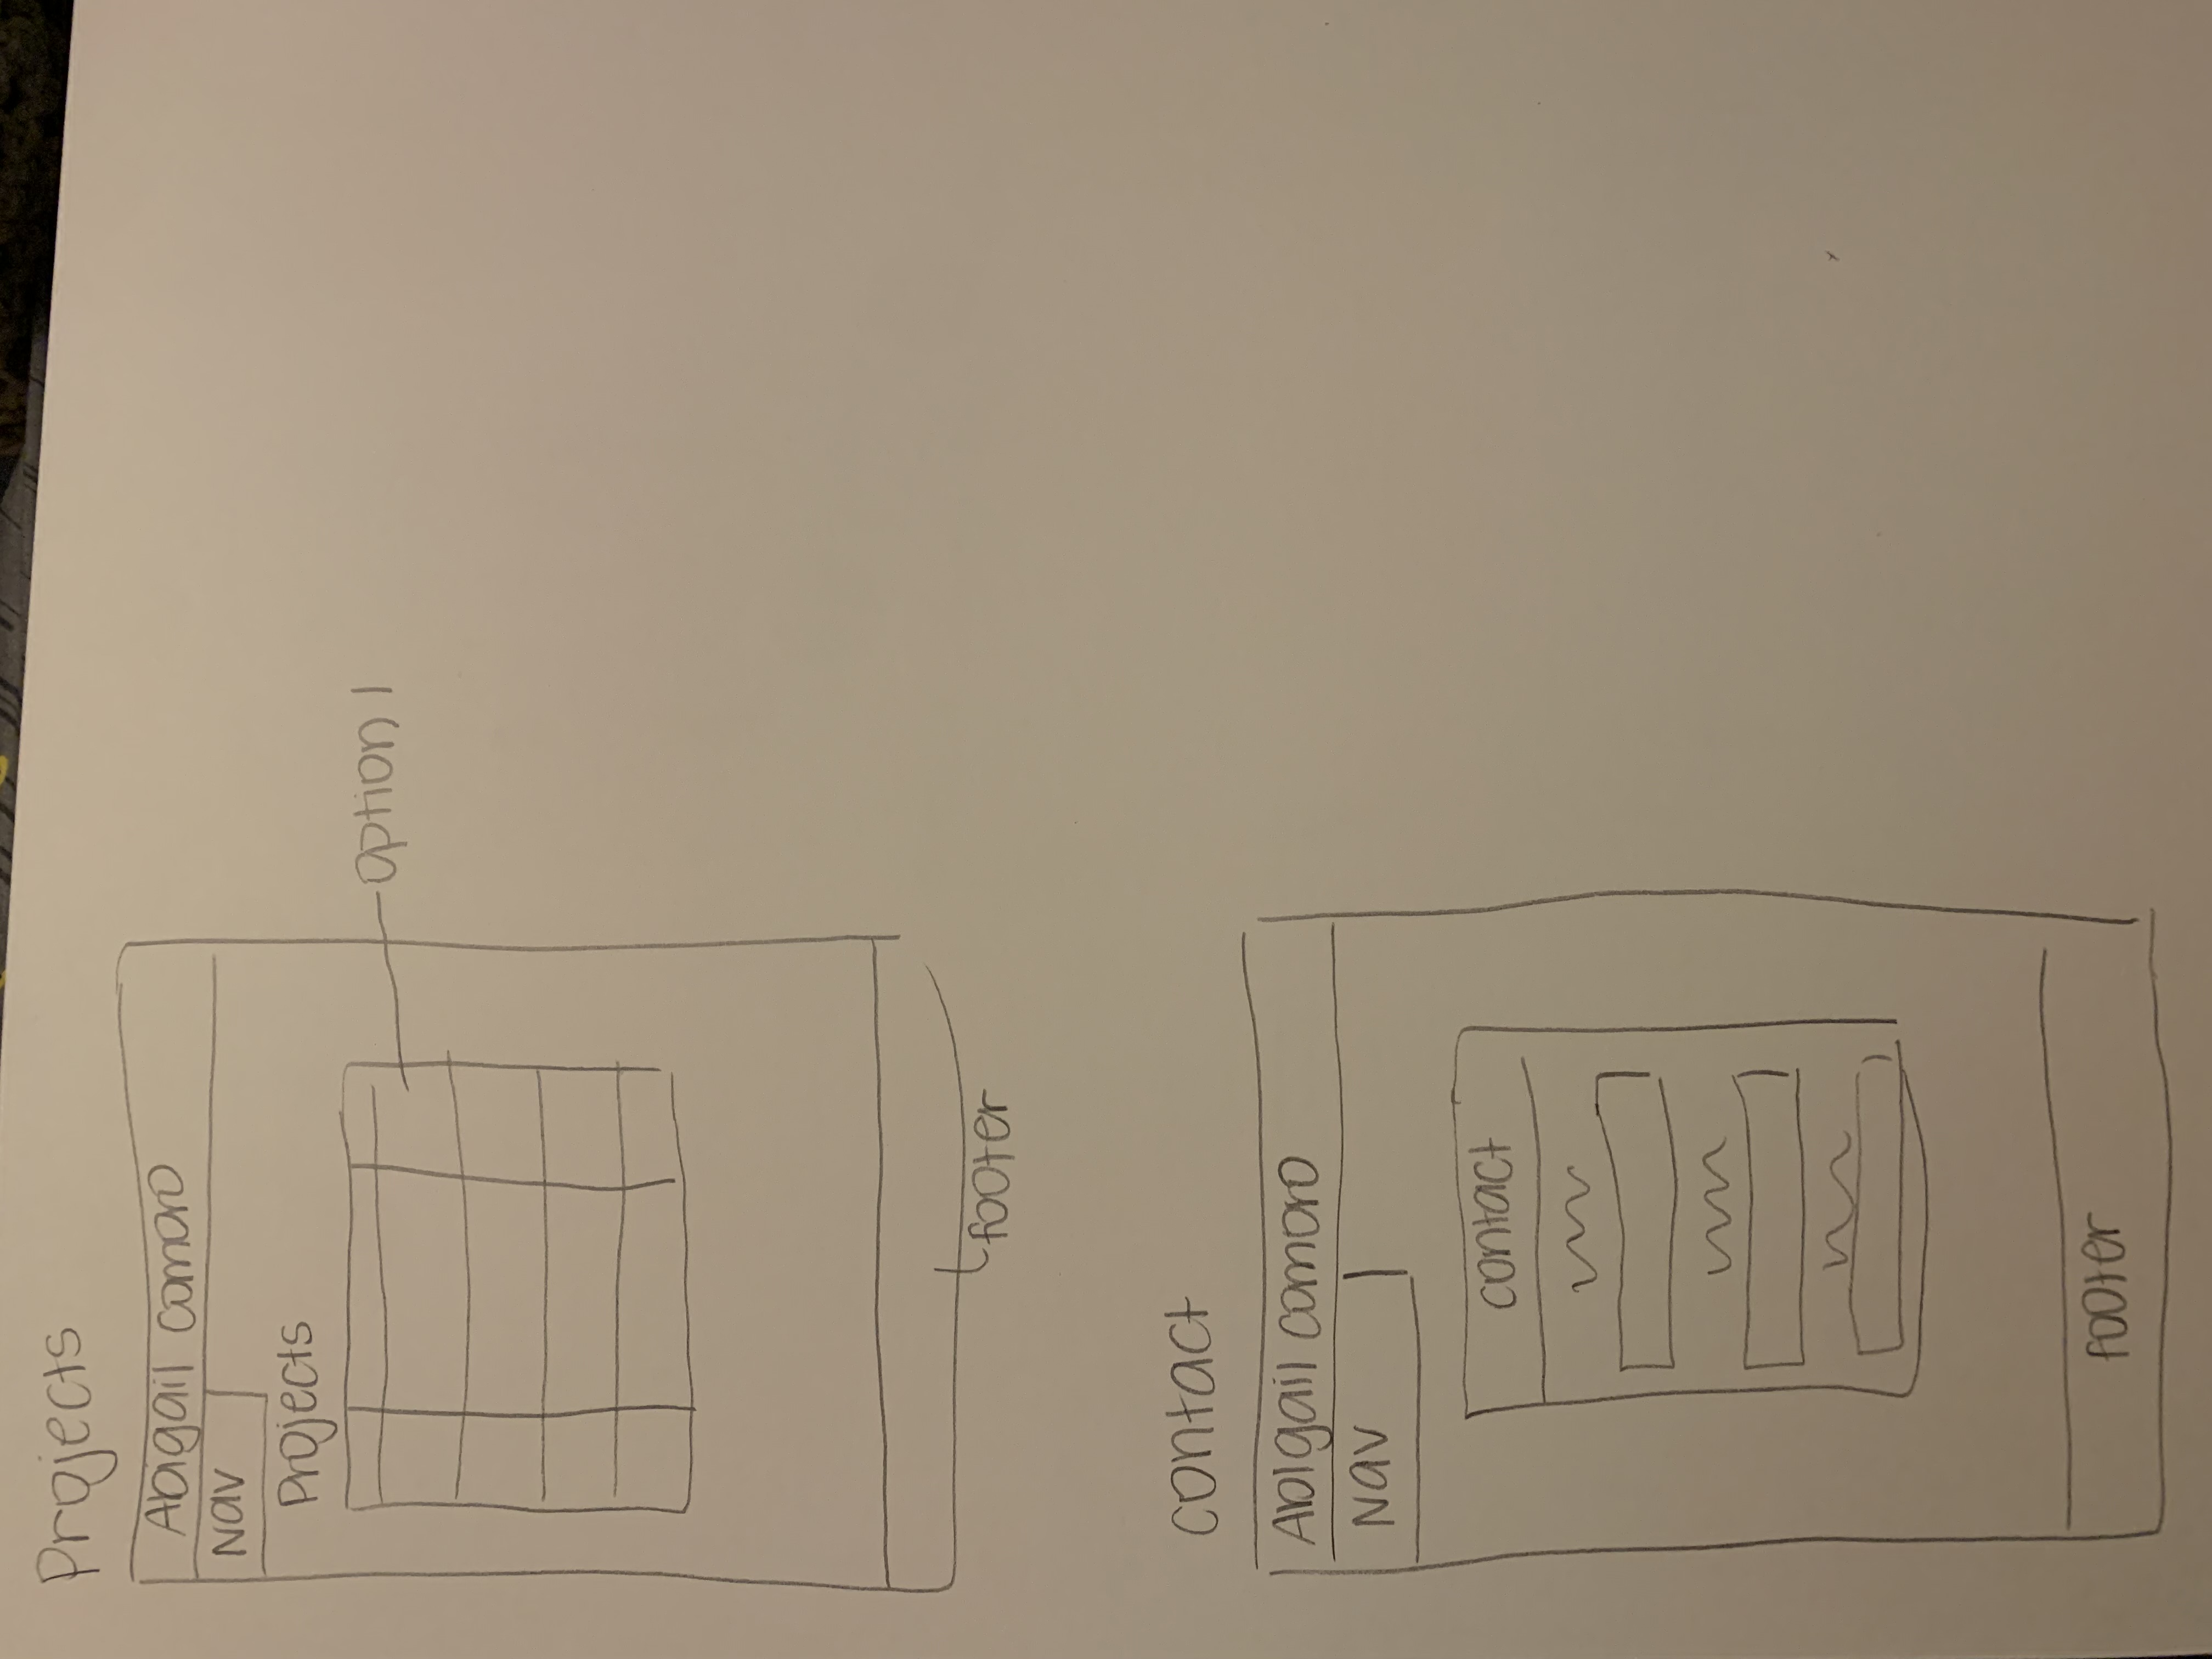 Projects
Abigail comoro
Nav
Projects
option 1
footer
contact
Abigail comoro
Nav
contact
footer